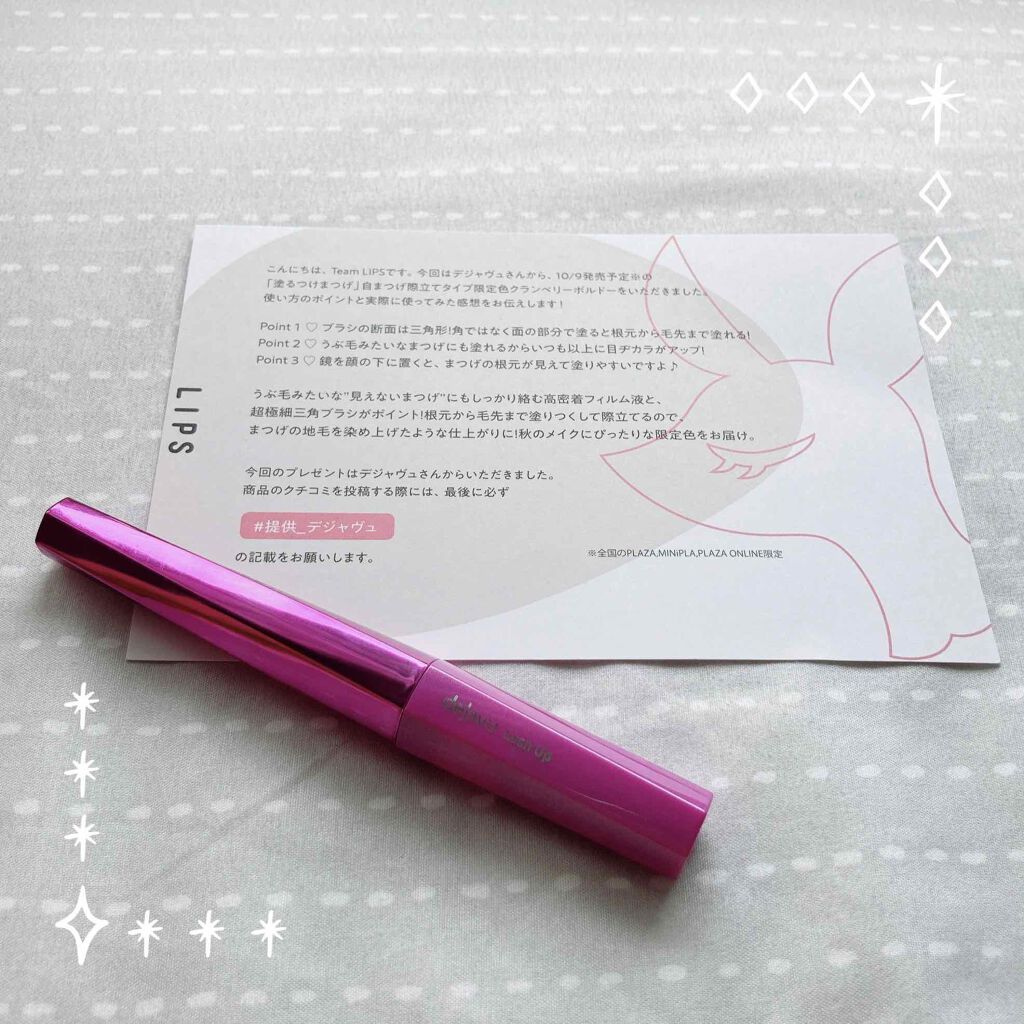 こんにちは、Team LIPSです。今回はデジャヴュさんから、10/9発売予定※の
「塗るつけまつげ」自まつげ際立てタイプ限定色クランベリーボルドーをいただきました。
使い方のポイントと実際に使ってみた感想をお伝えします!
Point 1 ♡ ブラシの断面は三角形!角ではなく面の部分で塗ると根元から毛先まで塗れる!
Point 2 ♡ うぶ毛みたいなまつげにも塗れるからいつも以上に目ヂカラがアップ!
Point 3 ♡ 鏡を顔の下に置くと、まつげの根元が見えて塗りやすいですよ♪
LIPS
うぶ毛みたいな"見えないまつげ"にもしっかり絡む高密着フィルム液と、
超極細三角ブラシがポイント!根元から毛先まで塗りつくして際立てるので、
まつげの地毛を染め上げたような仕上がりに!秋のメイクにぴったりな限定色をお届け。
今回のプレゼントはデジャヴュさんからいただきました。
商品のクチコミを投稿する際には、最後に必ず
#提供_デジャヴュ
の記載をお願いします。
※全国のPLAZA,MINiPLA,PLAZA ONLINE限定
dejavu lash up